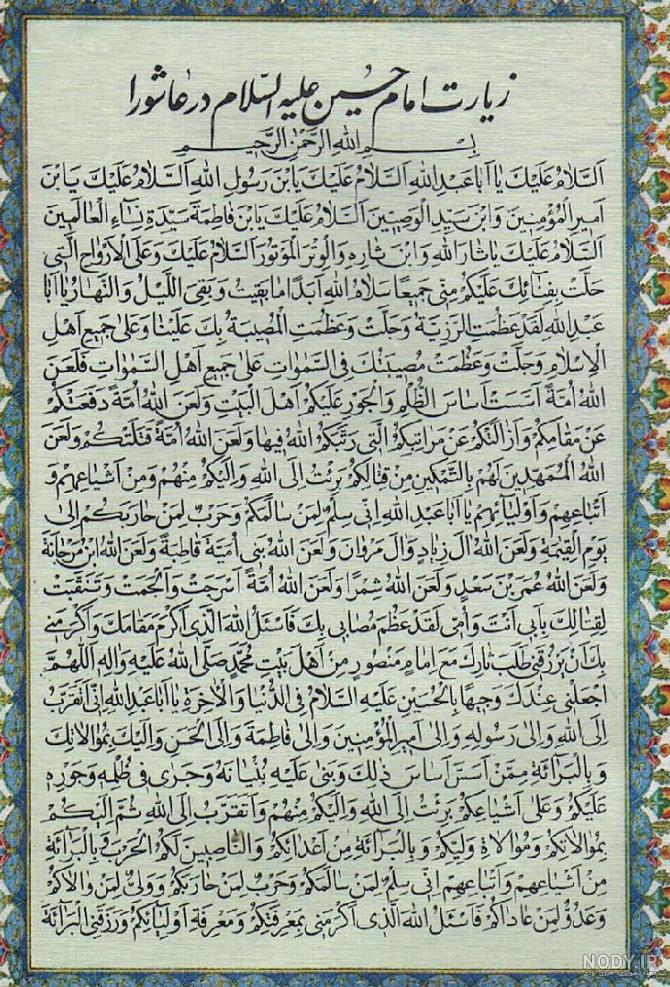 زیارت امام حسین علیه السّلام در عاشورا
بِسْمِ اللهِ الرَّحْمٰنِ الرَّحیمِ
اَلسَّلامُ عَلَیْكَ یا اَبا عَبْدِاللهِ اَلسَّلامُ عَلَیْكَ یَابْنَ رَسُولِ اللهِ اَلسَّلامُ عَلَیْكَ یَا بْنَ
اَمیرِ الْمُؤْمِنینَ وَابْنَ سَیِّدِ الْوَصِیّینَ اَلسَّلامُ عَلَیْكَ یَابْنَ فاطِمَةَ سَیِّدَةِ نِساءِ الْعالَمینَ
اَلسَّلامُ عَلَیْكَ یا ثارَ اللهِ وَابْنَ ثارِهِ وَالْوِتْرَ الْمَوْتُورَ اَلسَّلامُ عَلَیْكَ وَعَلَی الْاَرْواحِ الَّتی
حَلَّتْ بِفِنائِكَ عَلَیْكُمْ مِنّی جَمیعًا سَلامُ اللهِ اَبَدًا ما بَقیتُ وَبَقِیَ اللَّیْلُ وَالنَّهارُ یا اَبا
عَبْدِاللهِ لَقَدْ عَظُمَتِ الرَّزِیَّةُ وَجَلَّتْ وَعَظُمَتِ الْمُصیبَةُ بِكَ عَلَیْنا وَعَلی جَمیعِ اَهْلِ
الْاِسْلامِ وَجَلَّتْ وَعَظُمَتْ مُصیبَتُكَ فِی السَّمٰواتِ عَلی جَمیعِ اَهْلِ السَّمٰواتِ فَلَعَنَ
اللهُ اُمَّةً اَسَّسَتْ اَساسَ الظُّلْمِ وَالْجَوْرِ عَلَیْكُمْ اَهْلَ الْبَیْتِ وَلَعَنَ اللهُ اُمَّةً دَفَعَتْكُمْ
عَنْ مَقامِكُمْ وَاَزالَتْكُمْ عَنْ مَراتِبِكُمُ الَّتی رَتَّبَكُمُ اللهُ فیها وَلَعَنَ اللهُ اُمَّةً قَتَلَتْكُمْ وَلَعَنَ
اللهُ الْمُمَهِّدینَ لَهُمْ بِالتَّمْكینِ مِنْ قِتالِكُمْ بَرِئْتُ اِلَی اللهِ وَاِلَیْكُمْ مِنْهُمْ وَمِنْ اَشْیاعِهِمْ وَ
اَتْباعِهِمْ وَاَوْلِیائِهِمْ یا اَبا عَبْدِ اللهِ اِنّی سِلْمٌ لِمَنْ سالَمَكُمْ وَحَرْبٌ لِمَنْ حارَبَكُمْ اِلی
یَوْمِ الْقِیٰمَةِ وَلَعَنَ اللهُ الَ زِیادٍ وَالَ مَرْوانَ وَلَعَنَ اللهُ بَنی اُمَیَّةَ قاطِبَةً وَلَعَنَ اللهُ ابْنَ مَرْجانَةَ
وَلَعَنَ اللهُ عُمَرَ بْنَ سَعْدٍ وَلَعَنَ اللهُ شِمْرًا وَلَعَنَ اللهُ اُمَّةً اَسْرَجَتْ وَاَلْجَمَتْ وَتَنَقَّبَتْ
لِقِتالِكَ بِاَبی اَنْتَ وَاُمّی لَقَدْ عَظُمَ مُصابی بِكَ فَاَسْئَلُ اللهَ الَّذی اَكْرَمَ مَقامَكَ وَاَكْرَمَنی
بِكَ اَنْ یَرْزُقَنی طَلَبَ ثارِكَ مَعَ اِمامٍ مَنْصُورٍ مِنْ اَهْلِ بَیْتِ مُحَمَّدٍ صَلَّی اللهُ عَلَیْهِ وَالِهِ اَللّٰهُمَّ
اجْعَلْنی عِنْدَكَ وَجیهًا بِالْحُسَیْنِ عَلَیْهِ السَّلامُ فِی الدُّنْیا وَالْاخِرَةِ یا اَبا عَبْدِاللهِ اِنّی اَتَقَرَّبُ
اِلَی اللهِ وَاِلی رَسُولِهِ وَاِلی اَمیرِ الْمُؤْمِنینَ وَاِلی فاطِمَةَ وَاِلَی الْحَسَنِ وَاِلَیْكَ بِمُوالاتِكَ
وَبِالْبَرائَةِ مِمَّنْ اَسَّسَ اَساسَ ذٰلِكَ وَبَنی عَلَیْهِ بُنْیانَهُ وَجَری فی ظُلْمِهِ وَجَوْرِهِ
عَلَیْكُمْ وَعَلی اَشْیاعِكُمْ بَرِئْتُ اِلَی اللهِ وَاِلَیْكُمْ مِنْهُمْ وَاَتَقَرَّبُ اِلَی اللهِ ثُمَّ اِلَیْكُمْ
بِمُوالاتِكُمْ وَمُوالاةِ وَلِیِّكُمْ وَبِالْبَرائَةِ مِنْ اَعْدائِكُمْ وَالنّاصِبینَ لَكُمُ الْحَرْبَ وَبِالْبَرائَةِ
مِنْ اَشْیاعِهِمْ وَاَتْباعِهِمْ اِنّی سِلْمٌ لِمَنْ سالَمَكُمْ وَحَرْبٌ لِمَنْ حارَبَكُمْ وَوَلِیٌّ لِمَنْ والاكُمْ
وَعَدُوٌّ لِمَنْ عاداكُمْ فَاَسْئَلُ اللهَ الَّذی اَكْرَمَنی بِمَعْرِفَتِكُمْ وَمَعْرِفَةِ اَوْلِیائِكُمْ وَرَزَقَنِی الْبَرائَةَ
NODY.IR